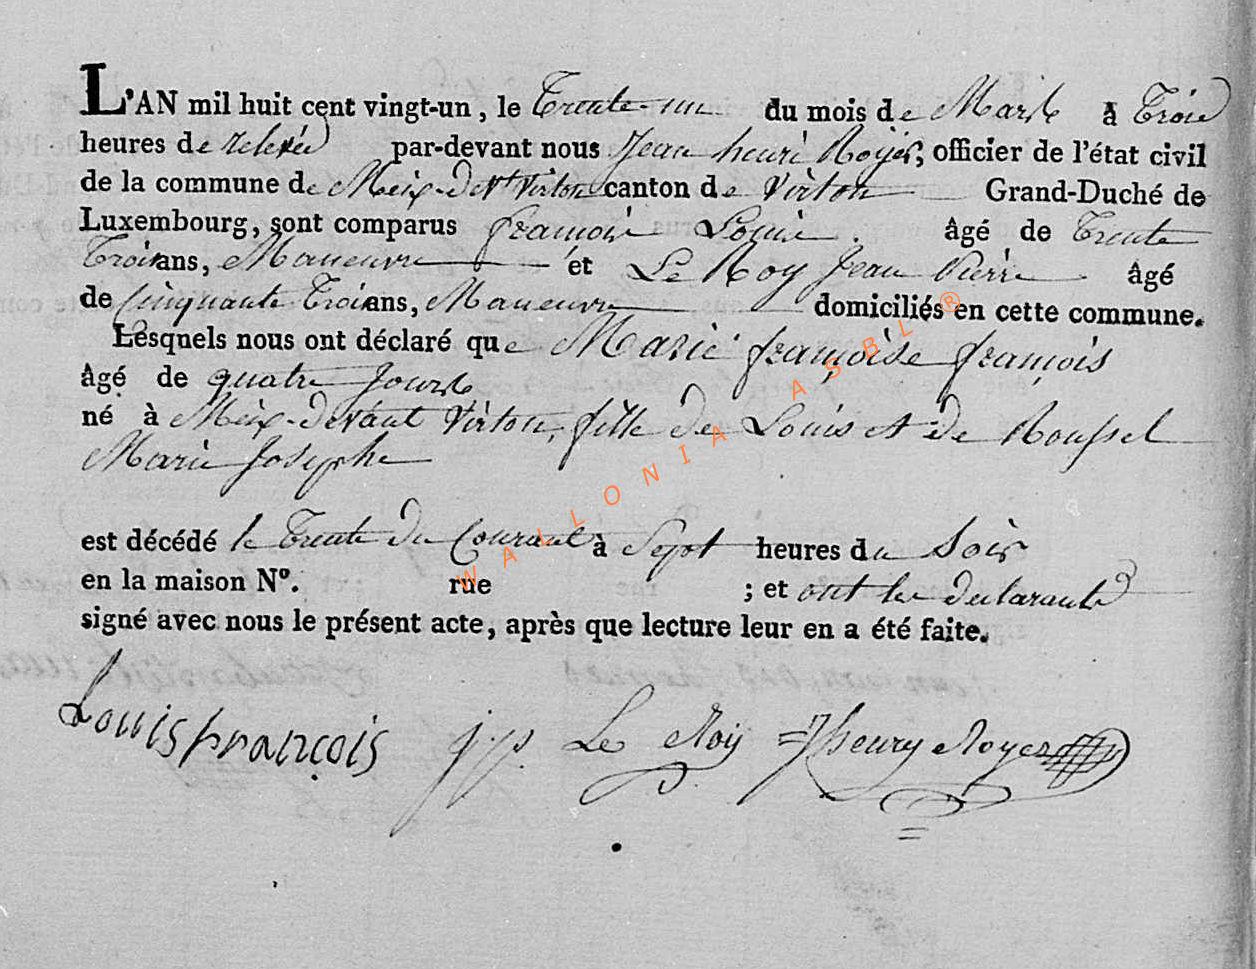 L'AN mil huit cent vingt-un, le Trente-un du mois de Mars à Trois
heures de relevée par-devant nous Jean henri Royer, officier de l'état civil
de la commune de Meix-devt Virton canton de Virton Grand-Duché de
Luxembourg, sont comparus françois Louis âgé de Trente
Trois ans, Maneuvre et Le Roy Jean Pierre âgé
de Cinquante Trois ans, Maneuvre domiciliés en cette commune.
Lesquels nous ont déclaré que Marie françoise françois
âgé de quatre jours
né à Meix-devant Virton, fille de Louis et de Roussel
Marie Josephe
est décédé le Trente du Courant à Sept heures du Soir
en la maison N°. rue ; et ont les déclarants
signé avec nous le présent acte, après que lecture leur en a été faite.
Louis françois j. p. Le Roy J henry Royer
WALLONIA ASBL ®